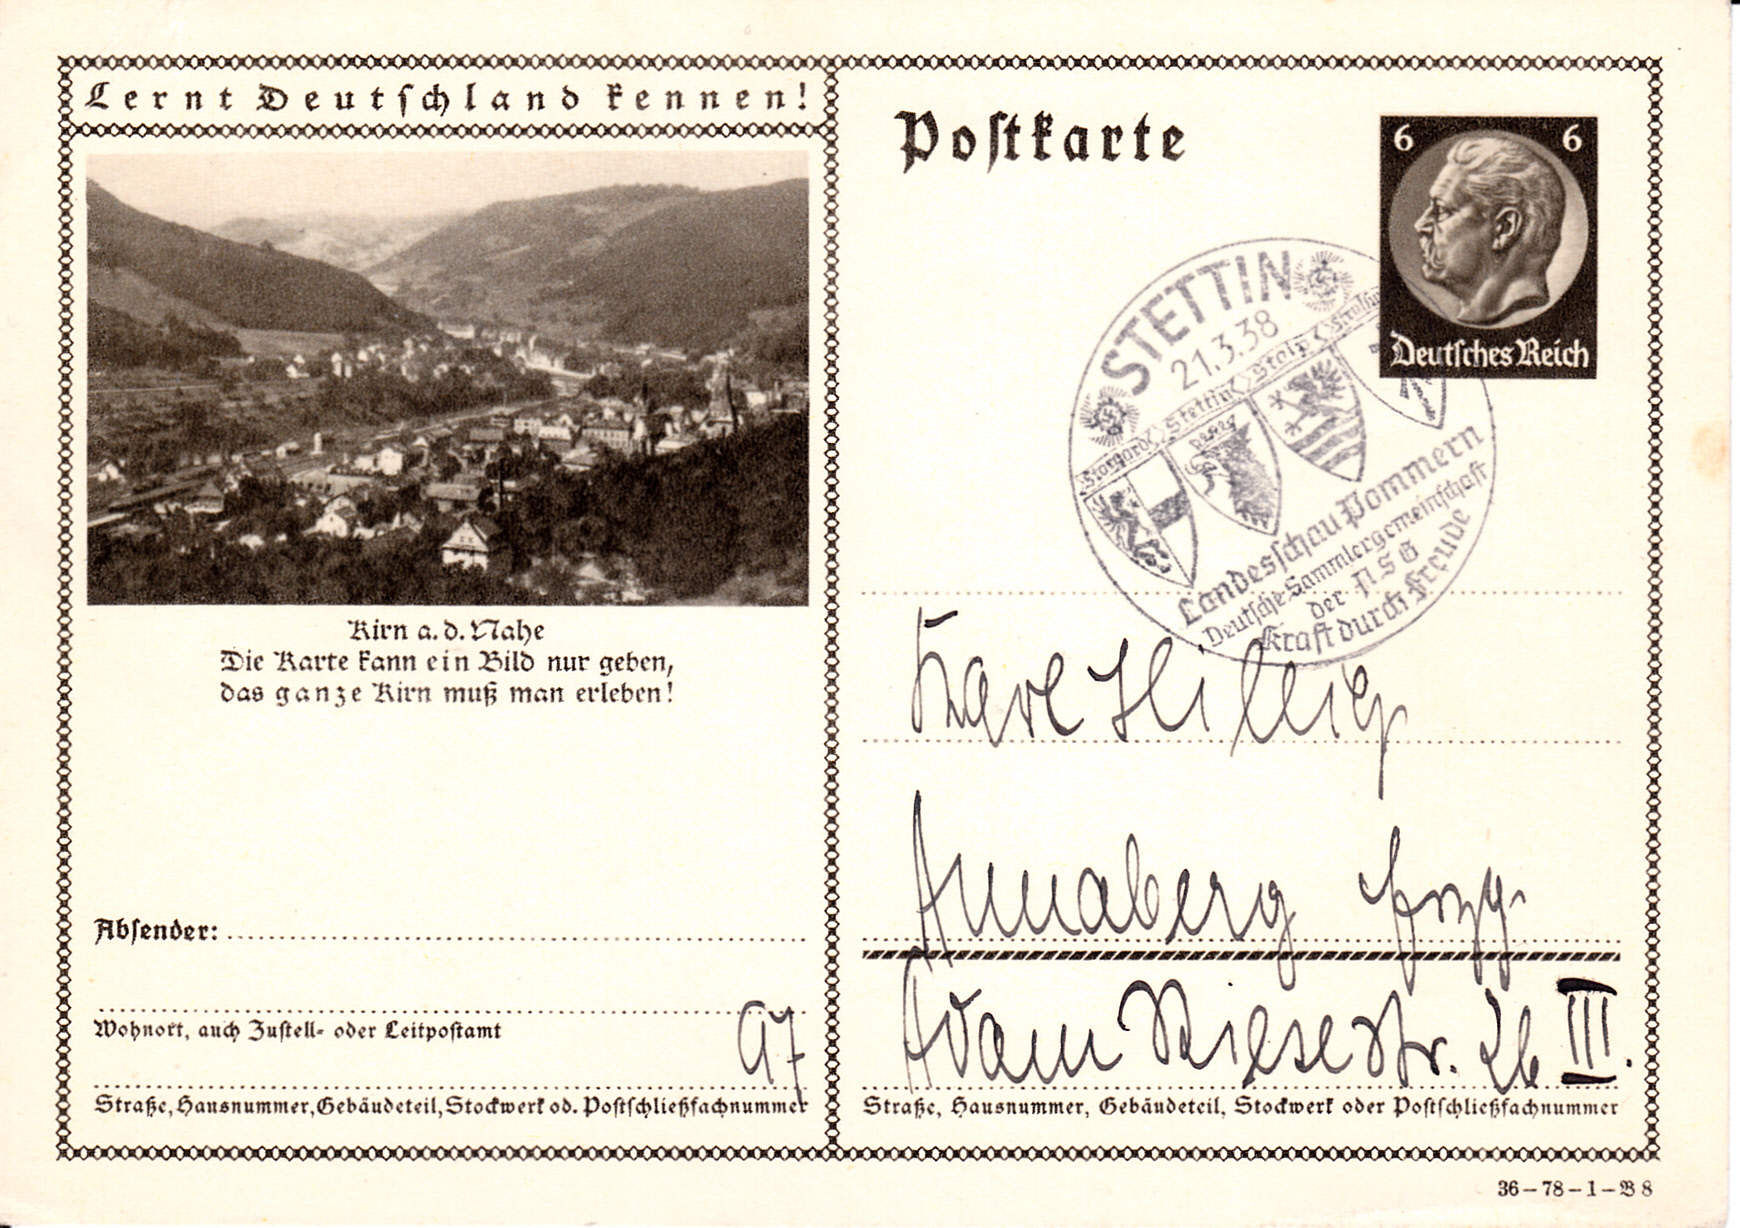 Lernt Deutschland kennen!
Kirn a. d. Nahe
Die Karte kann ein Bild nur geben,
das ganze Kirn muß man erleben!
Absender:
Wohnort, auch Zustell- oder Leitpostamt
97
Straße, Hausnummer, Gebäudeteil, Stockwerk od. Postschließfachnummer
Postkarte
6 6
Deutsches Reich
STETTIN
21.3.38
Stargard Stettin Stolp
Landesschau Pommern
Deutsche Sammlergemeinschaft
der NSG
Kraft durch Freude
Karl Hillig
Annaberg Erzg.
Adam Riese Str. 26 III.
Straße, Hausnummer, Gebäudeteil, Stockwerk oder Postschließfachnummer
36–78–1–B 8